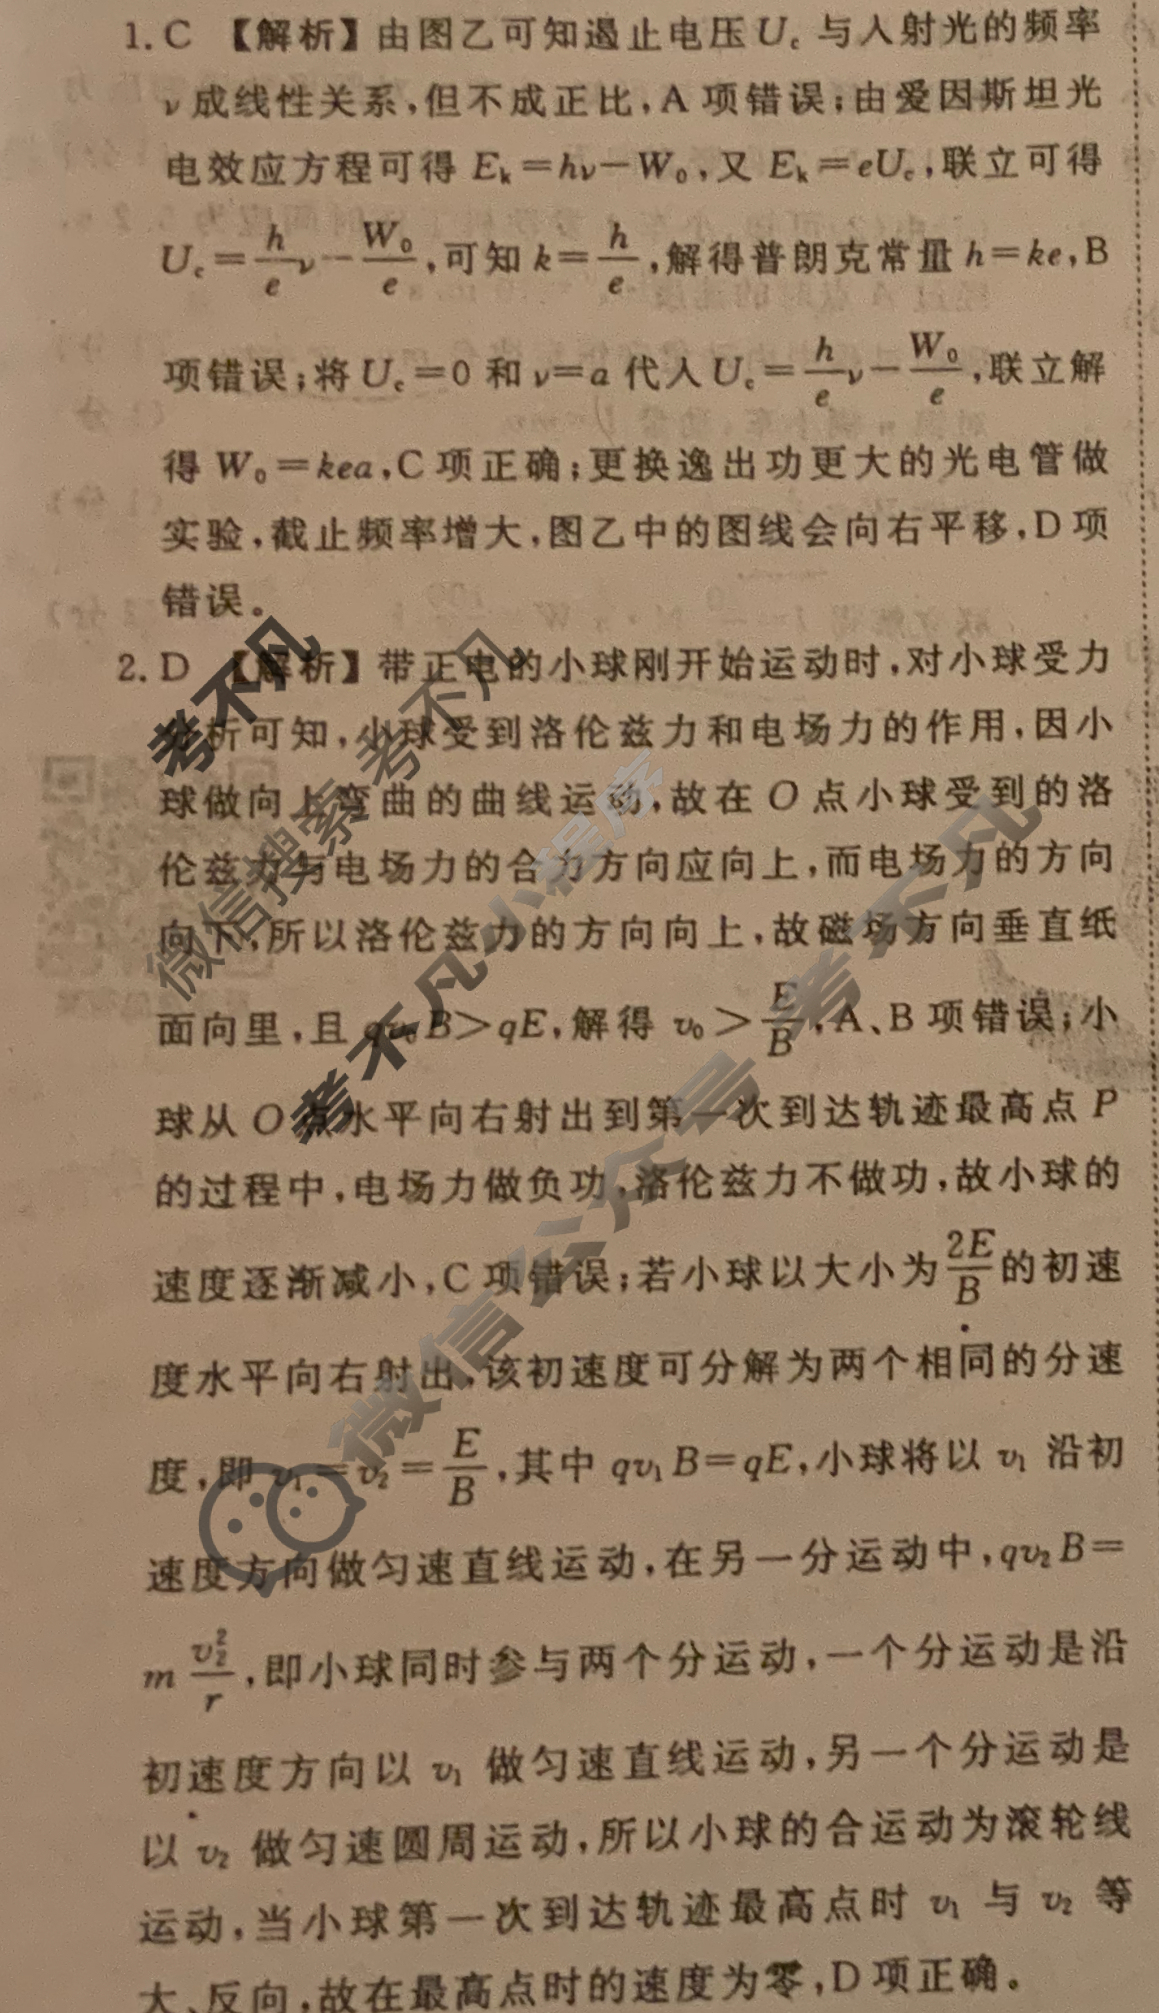 1. C 【解析】由图乙可知遏止电压 U꜀ 与入射光的频率
ν 成线性关系,但不成正比,A 项错误;由爱因斯坦光
电效应方程可得 Eₖ=hν−W₀,又 Eₖ=eU꜀,联立可得
U꜀=h/e ν−W₀/e,可知 k=h/e,解得普朗克常量 h=ke,B
项错误;将 U꜀=0 和 ν=a 代入 U꜀=h/e ν−W₀/e,联立解
得 W₀=kea,C 项正确;更换逸出功更大的光电管做
实验,截止频率增大,图乙中的图线会向右平移,D 项
错误。
2. D 【解析】带正电的小球刚开始运动时,对小球受力
析可知,小球受到洛伦兹力和电场力的作用,因小
球做向上弯曲的曲线运动,故在 O 点小球受到的洛
伦兹力与电场力的合力方向应向上,而电场力的方向
向下,所以洛伦兹力的方向向上,故磁场方向垂直纸
面向里,且 qv₀B>qE,解得 v₀>E/B,A、B 项错误;小
球从 O 点水平向右射出到第一次到达轨迹最高点 P
的过程中,电场力做负功,洛伦兹力不做功,故小球的
速度逐渐减小,C 项错误;若小球以大小为 2E/B 的初速
度水平向右射出,该初速度可分解为两个相同的分速
度,即 v₁=v₂=E/B,其中 qv₁B=qE,小球将以 v₁ 沿初
速度方向做匀速直线运动,在另一分运动中,qv₂B=
m v₂²/r,即小球同时参与两个分运动,一个分运动是沿
初速度方向以 v₁ 做匀速直线运动,另一个分运动是
以 v₂ 做匀速圆周运动,所以小球的合运动为滚轮线
运动,当小球第一次到达轨迹最高点时 v₁ 与 v₂ 等
大、反向,故在最高点时的速度为零,D 项正确。
考不凡
微信搜索 考不凡
考不凡小程序
微信公众号 考不凡